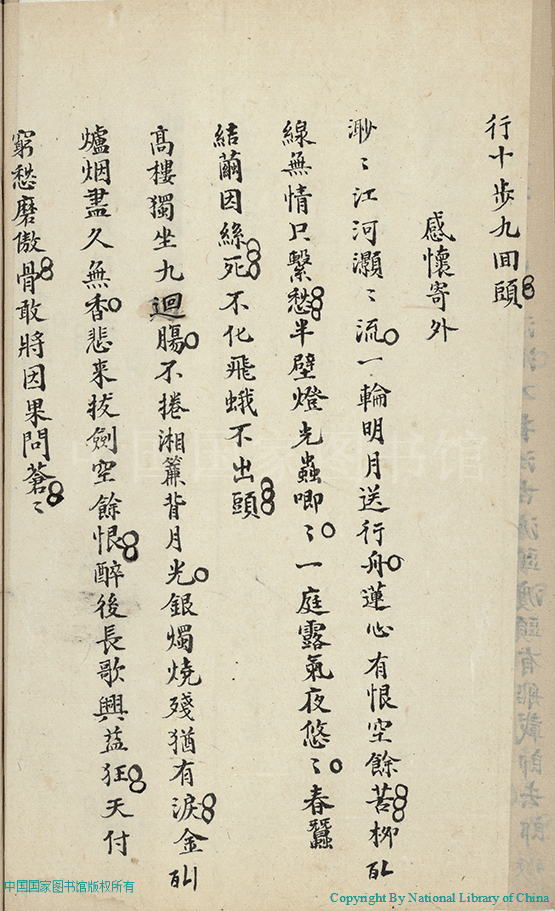 行十步九回頭
感懷寄外
渺〻江河灝〻流一輪明月送行舟蓮心有恨空餘苦柳
線無情只繫愁半壁燈光蟲唧〻一庭露氣夜悠〻春蠶
結繭因絲死不化飛蛾不出頭
高樓獨坐九迴腸不捲湘簾背月光銀燭燒殘猶有淚金
爐烟盡久無香悲来拔劍空餘恨醉後長歌興益狂天付
窮愁磨傲骨敢將因果問蒼〻
中国国家图书馆版权所有
Copyright By National Library of China